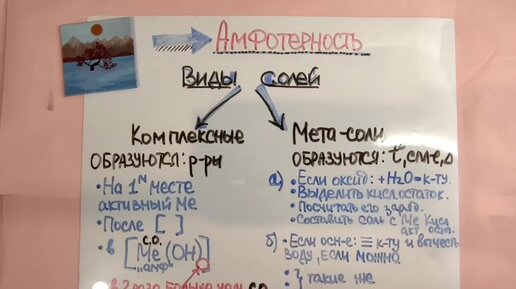 Амфотерность
Виды солей
Комплексные
ОБРАЗУЮТСЯ: р-ры
• На 1 месте
активный Me
• После [ ]
• в [Me (OH)]
с.о.
"амф"
Мета-соли
ОБРАЗУЮТСЯ: t°, спл-е, Δ
а) • Если оксид: +H2O=к-ту.
• Выделить кисл. остаток.
• Посчитать его заряд.
• Составить соль с Me Кисл
акт. ост.
б) • Если осн-е: ≡ к-ту и вычесть
воду, если можно
• } такие же